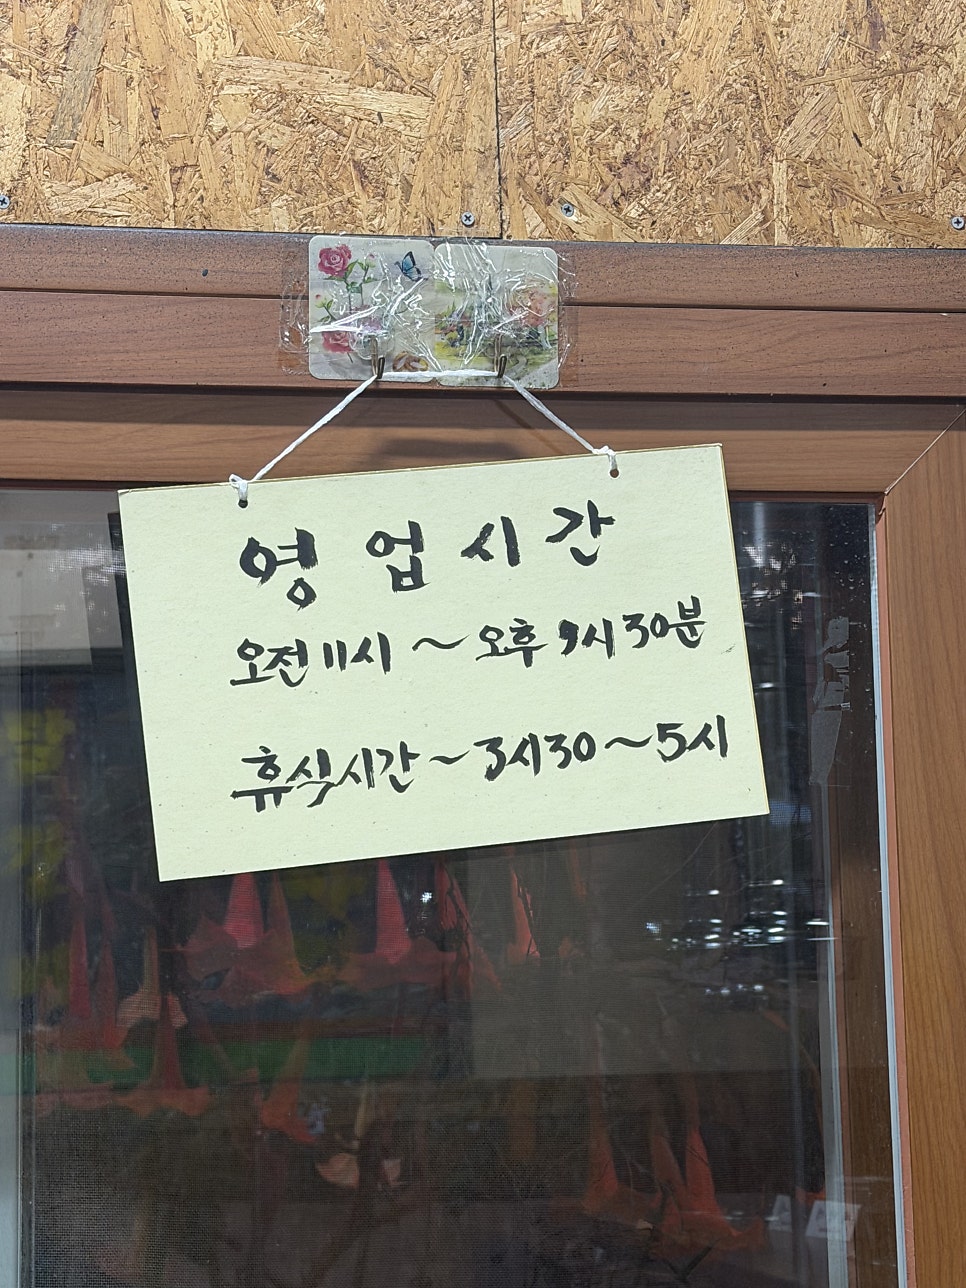 영업시간
오전 11시 ~ 오후 9시 30분
휴식시간 ~ 3시30 ~ 5시